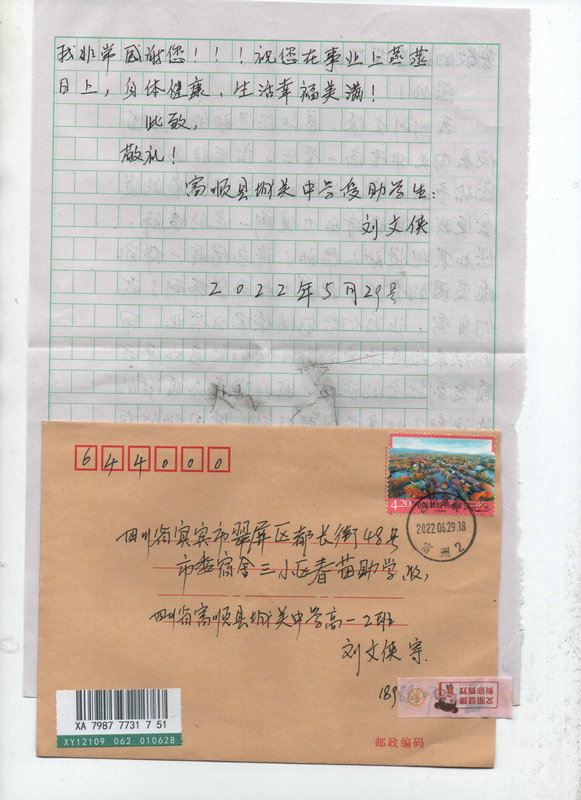 我非常感谢您！！！祝您在事业上蒸蒸
日上，身体健康，生活幸福美满！
此致，
敬礼！
富顺县城关中学受助学生：
刘文侠
2022年5月29号
644000
4.20
2022.06.29.18
富洲2
四川省宜宾市翠屏区都长街48号
市委宿舍三小区春苗助学 收，
四川省富顺县城关中学高一2班
刘文侠寄
189
文明健康
有你有我
XA 7987 7731 7 51
XY12109 062 010628
邮政编码